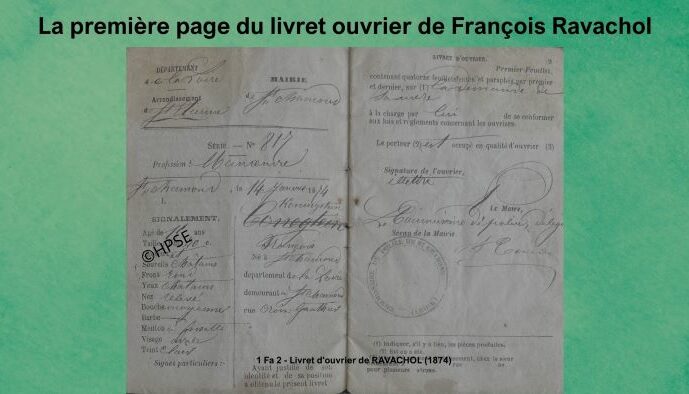 La première page du livret ouvrier de François Ravachol
DÉPARTEMENT
de la Loire
Arrondissement
de St Etienne
MAIRIE
de St Chamond
SÉRIE. — N° 817
Profession: Manoeuvre
St Chamond, le 14 Janvier 1874
SIGNALEMENT.
Age de ans
Taille
Sourcils Chatains
Front
Yeux Chatains
Nez
Bouche moyenne
Barbe
Menton
Visage
Teint Clair
Signes particuliers :
Koenigstein
François
Né à St Chamond
département de la Loire
demeurant à St Chamond
rue Croix Gauthier
Avant justifié de son
identité et de sa position
a obtenu le présent livret
©HPSE
LIVRET D'OUVRIER.
Premier Feuillet,
contenant quatorze feuillets cotés et paraphés par premier
et dernier, sur (1) la demande de
sa mère
à la charge par lui de se conformer
aux lois et règlements concernant les ouvriers.
Le porteur (2) est occupé en qualité d'ouvrier (3)
Signature de l'ouvrier,
Le Maire,
Le Commissaire de police délégué
Sceau de la Mairie
(1) Indiquer, s'il y a lieu, les pièces produites.
(2) Est ou a été.
1 Fa 2 - Livret d'ouvrier de RAVACHOL (1874)